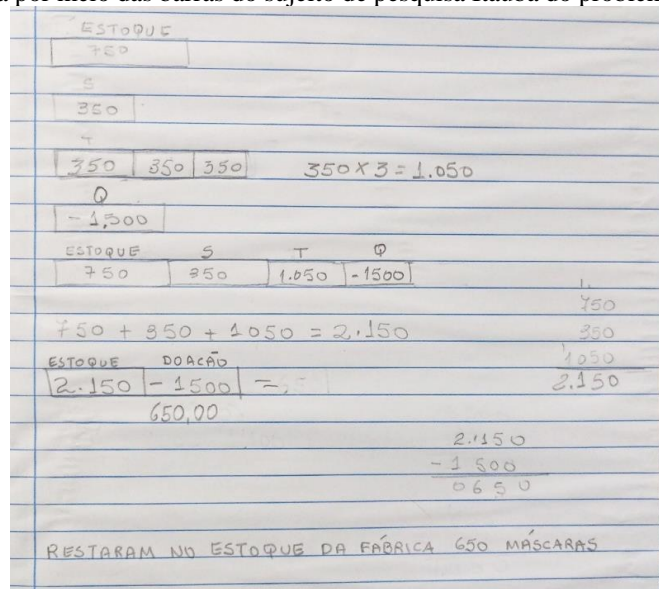 ESTOQUE
750
S
350
T
350 350 350 350 X 3 = 1.050
Q
- 1,500
ESTOQUE S T Q
750 350 1.050 -1500
750 + 350 + 1050 = 2.150
750
350
1050
2.150
ESTOQUE DOACÃO
2.150 - 1500 =
650,00
2.150
- 1 500
0650
RESTARAM NO ESTOQUE DA FÁBRICA 650 MÁSCARAS